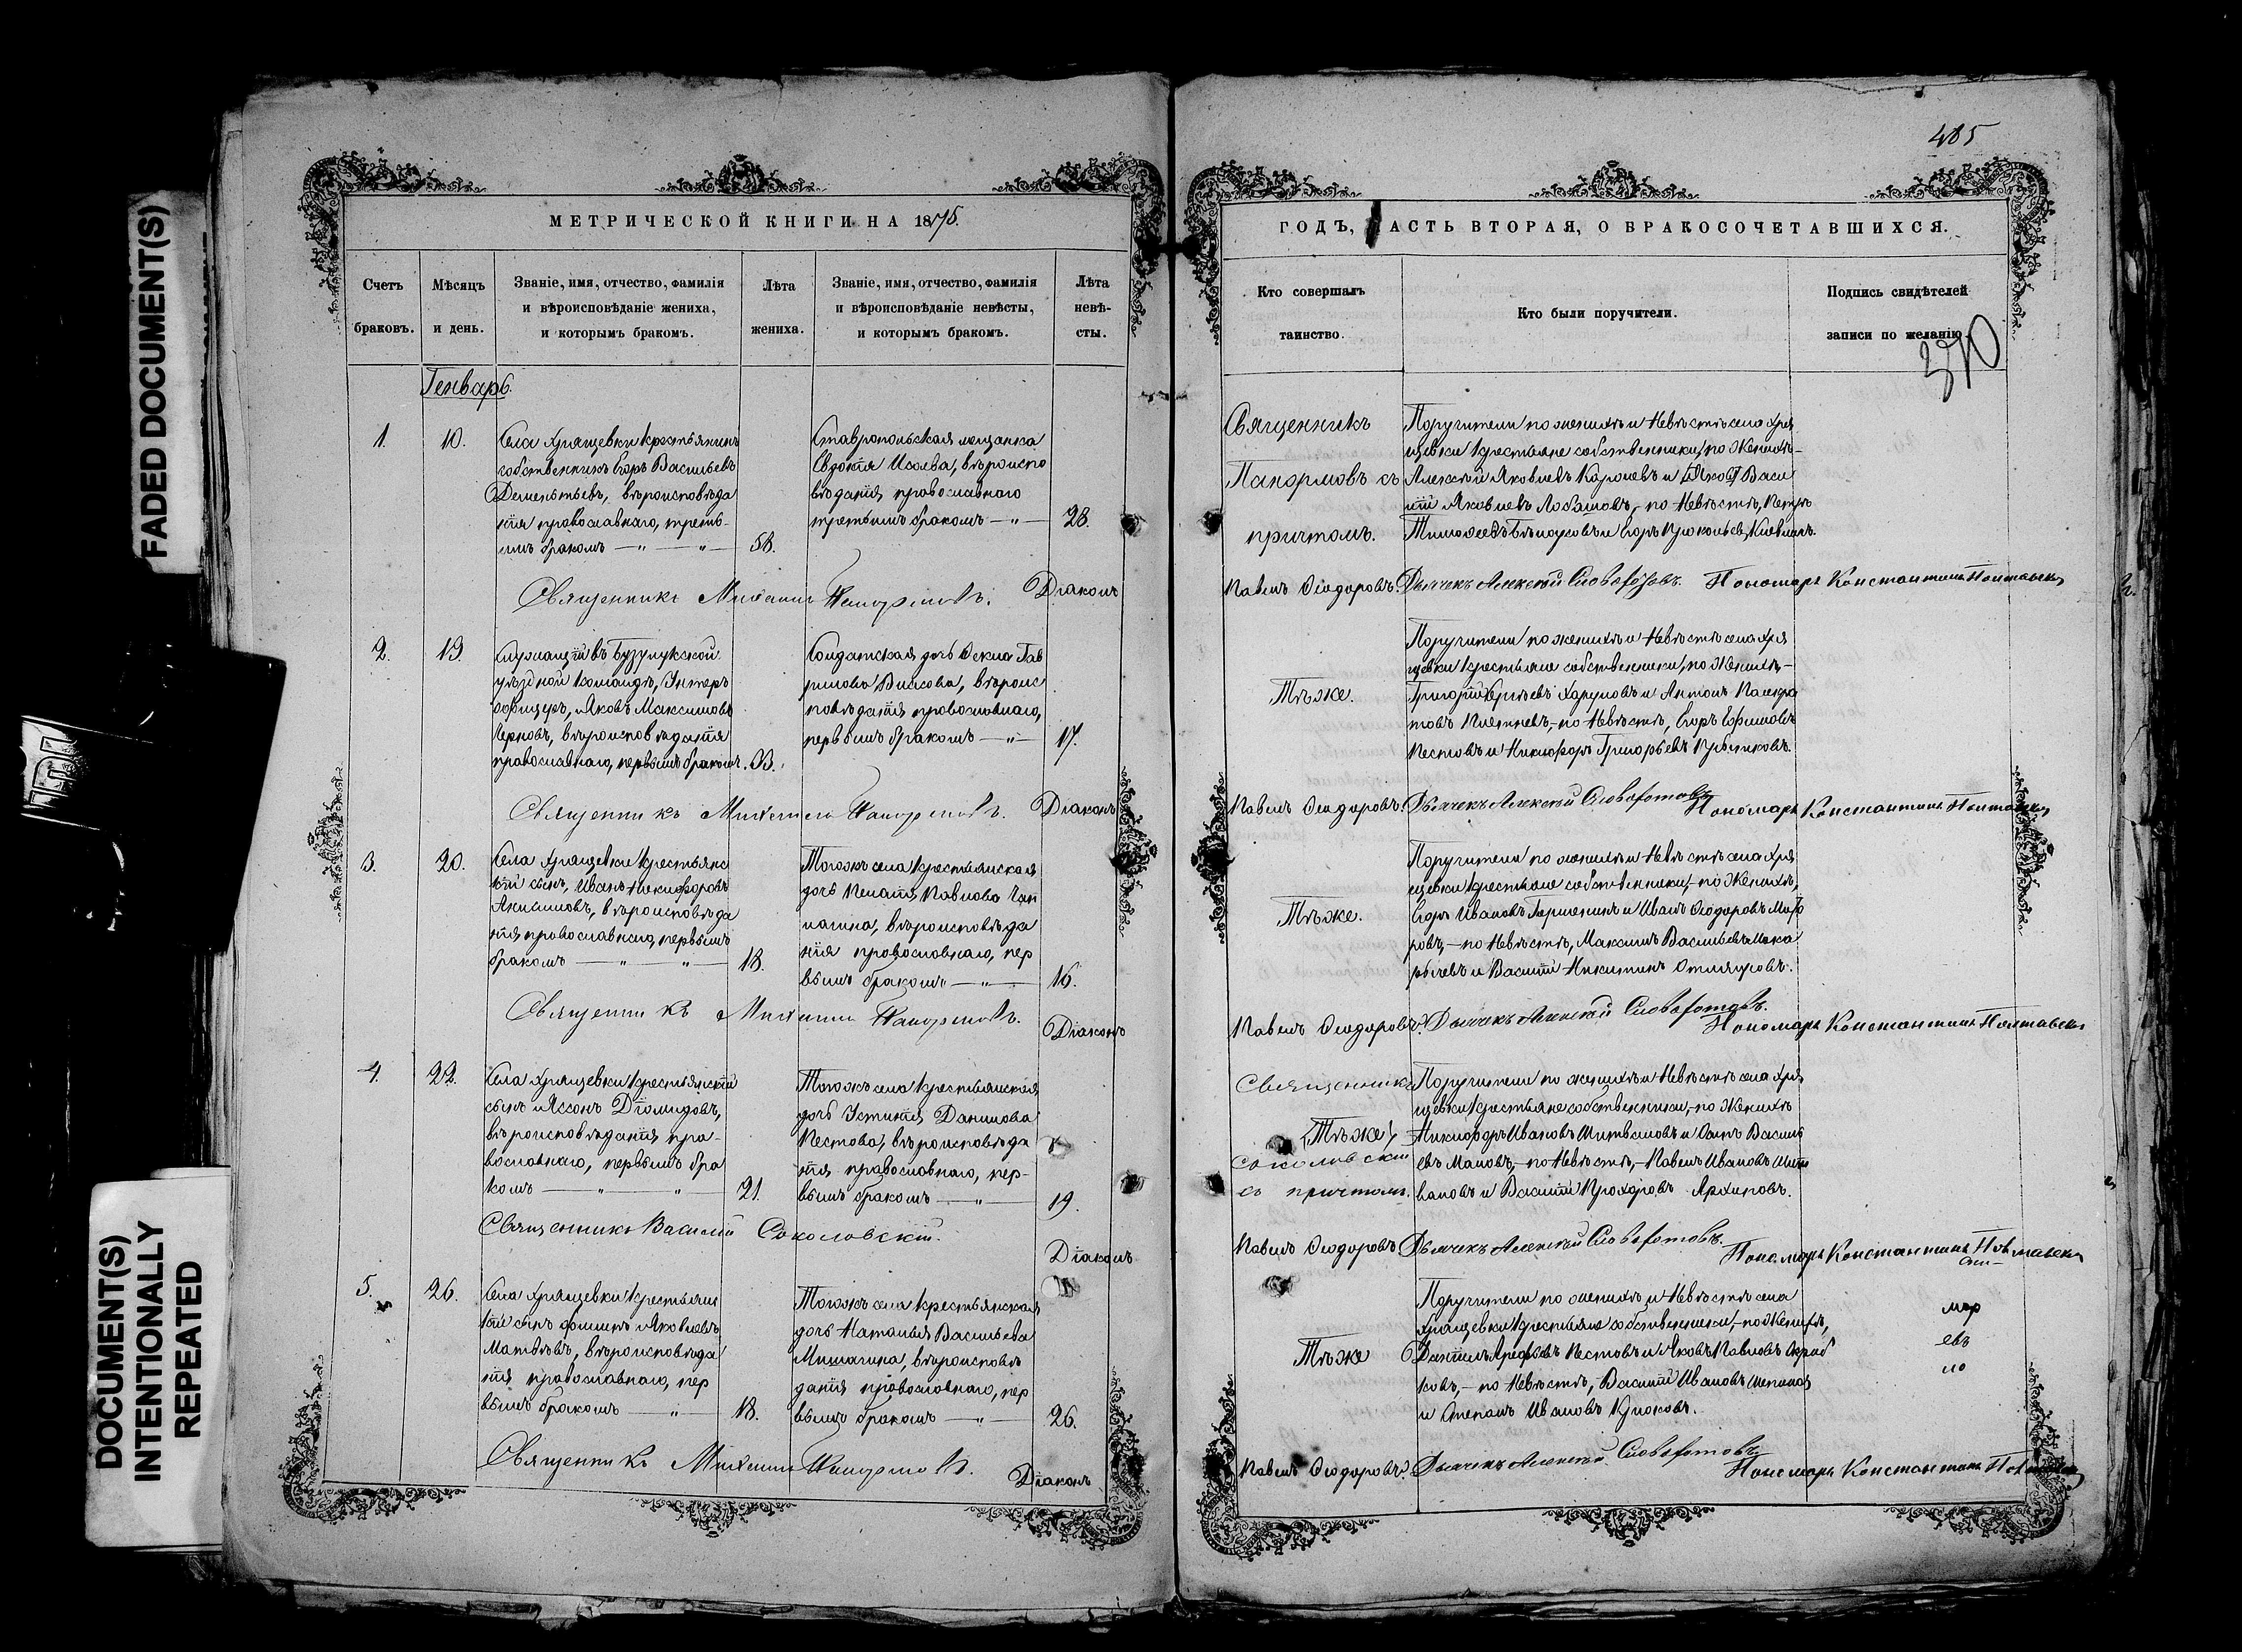 FADED DOCUMENT(S)
DOCUMENT(S)
INTENTIONALLY
REPEATED
485
МЕТРИЧЕСКОЙ КНИГИ НА 1875.
ГОДЪ, ЧАСТЬ ВТОРАЯ, О БРАКОСОЧЕТАВШИХСЯ.
Счетъ
браковъ.
Мѣсяцъ
и день.
Званіе, имя, отчество, фамилія
и вѣроисповѣданіе жениха,
и которымъ бракомъ.
Лѣта
жениха.
Званіе, имя, отчество, фамилія
и вѣроисповѣданіе невѣсты,
и которымъ бракомъ.
Лѣта
невѣ-
сты.
Кто совершалъ
таинство.
Кто были поручители.
Подпись свидѣтелей
записи по желанію
370
Генварь
1.
10.
Села Хрящевки крестьянинъ
собственникъ Егоръ Васильевъ
Дементьевъ, вѣроисповѣда
нія православнаго, треть-
имъ бракомъ
58.
Ставропольская мещанка
Евдокія, вѣроиспо
вѣданія православнаго
третьимъ бракомъ
28.
Священникъ
Панормовъ съ
причтомъ.
Поручители по женихѣ и невѣстѣ села Хря
щевки крестьяне собственники, по женихѣ-
Алексѣй Яковлевъ и Васи
лій Яковлевъ Лобановъ, по невѣстѣ, Петръ
и Егоръ Прокопьевъ
Священникъ Михаилъ Панормовъ. Діаконъ
Павелъ Ѳеодоровъ. Дьячекъ Алексѣй Словоротовъ. Пономарь Константинъ Полтавск
2.
19.
Служащій въ Бузулукской
уѣздной командѣ, Унтеръ
офицеръ, Яковъ Максимовъ
Черновъ, вѣроисповѣданія
православнаго, первымъ бракомъ. 33.
Солдатская дочь Ѳекла Гав
рилова Власова, вѣроис
повѣданія православнаго,
первымъ бракомъ
17.
Тѣже.
Поручители по женихѣ и невѣстѣ села Хря
щевки крестьяне собственники, по женихѣ-
Григорій Сергѣевъ Харуновъ и Антонъ Панкра
товъ Плетневъ,-по невѣстѣ, Егоръ Ефимовъ
Пестовъ и Никифоръ Григорьевъ
Священникъ Михаилъ Панормовъ. Діаконъ
Павелъ Ѳеодоровъ. Дьячекъ Алексѣй Словоротовъ. Пономарь Константинъ Полтавск
3.
20.
Села Хрящевки крестьянс
кій сынъ, Иванъ Никифоровъ
Акимовъ, вѣроисповѣда
нія православнаго, первымъ
бракомъ
18.
Тогожъ села крестьянская
дочь Пелагія Павлова Чап
лагина, вѣроисповѣда
нія православнаго, пер
вымъ бракомъ
16.
Тѣже.
Поручители по женихѣ и невѣстѣ села Хря
щевки крестьяне собственники,-по женихѣ,
Егоръ Ивановъ и Иванъ Ѳеодоровъ
ровъ,-по невѣстѣ, Максимъ Васильевъ Мака
рычевъ и Василій Никитинъ
Священникъ Михаилъ Панормовъ. Діаконъ
Павелъ Ѳеодоровъ. Дьячекъ Алексѣй Словоротовъ. Пономарь Константинъ Полтавск
4.
22.
Села Хрящевки крестьянскій
сынъ Іассонъ Діомидовъ,
вѣроисповѣданія пра-
вославнаго, первымъ бра
комъ
21.
Тогожъ села крестьянская
дочь Устинія Данилова
Пестова, вѣроисповѣда
нія православнаго, пер-
вымъ бракомъ
19.
Священникъ
Тѣже
Соколовскій
съ причтомъ.
Поручители по женихѣ и невѣстѣ села Хря
щевки крестьяне собственники,-по женихѣ
Никифоръ Ивановъ и Осипъ Василь
евъ Маловъ,-по невѣстѣ,-Павелъ Ивановъ
вановъ и Василій Прохоровъ Архиповъ.
Священникъ Василій Соколовскій. Діаконъ
Павелъ Ѳеодоровъ Дьячекъ Алексѣй Словоротовъ. Пономарь Константинъ Полтавск
5.
26.
Села Хрящевки крестьянс
кій сынъ Филиппъ Яковлевъ
Матвѣевъ, вѣроисповѣда
нія православнаго, пер
вымъ бракомъ
18.
Тогожъ села крестьянская
дочь Наталья Васильева
Мишагина, вѣроисповѣ
данія православнаго, пер
вымъ бракомъ
26.
Тѣже
Поручители по женихѣ и невѣстѣ села
Хрящевки крестьяне собственники,-по женихѣ,
Даніилъ Арефьевъ Пестовъ и Яковъ Павловъ
ковъ,-по невѣстѣ, Василій Ивановъ
и Степанъ Ивановъ Крюковъ.
мар
евъ
ло
Священникъ Михаилъ Панормовъ. Діаконъ
Павелъ Ѳеодоровъ. Дьячекъ Алексѣй Словоротовъ. Пономарь Константинъ